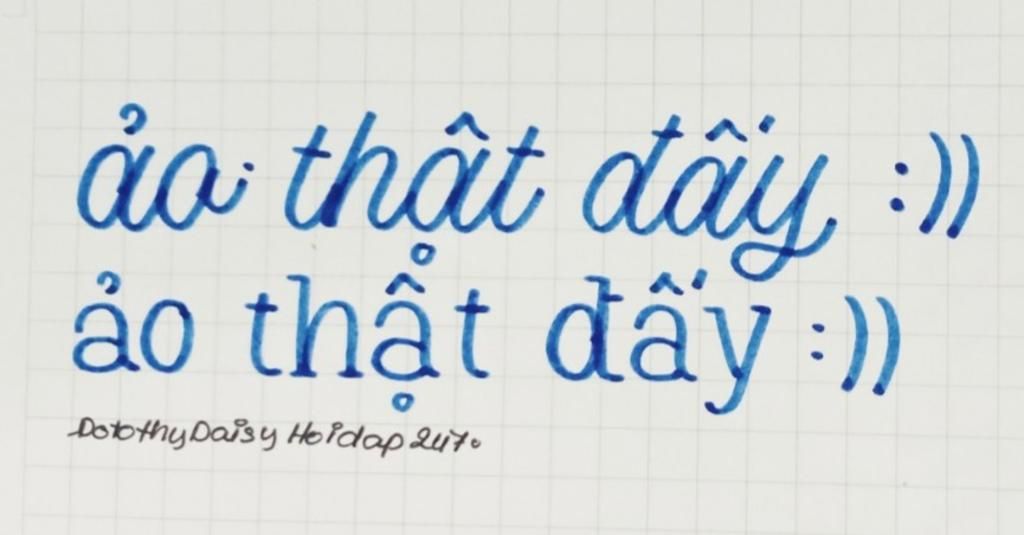 ảo thật đấy :))
ảo thật đấy :))
DorothyDaisy Hoidap247.